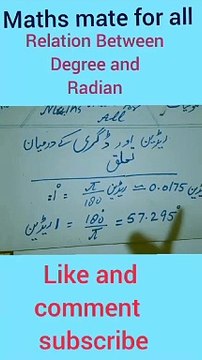 Maths mate for all
Relation Between
Degree and
Radian
All
ریڈین اور ڈگری کے درمیان
تعلق
1° = π/180 ریڈین = 0.0175 ریڈین
1 ریڈین = 180°/π = 57.295°
Like and
comment
subscribe